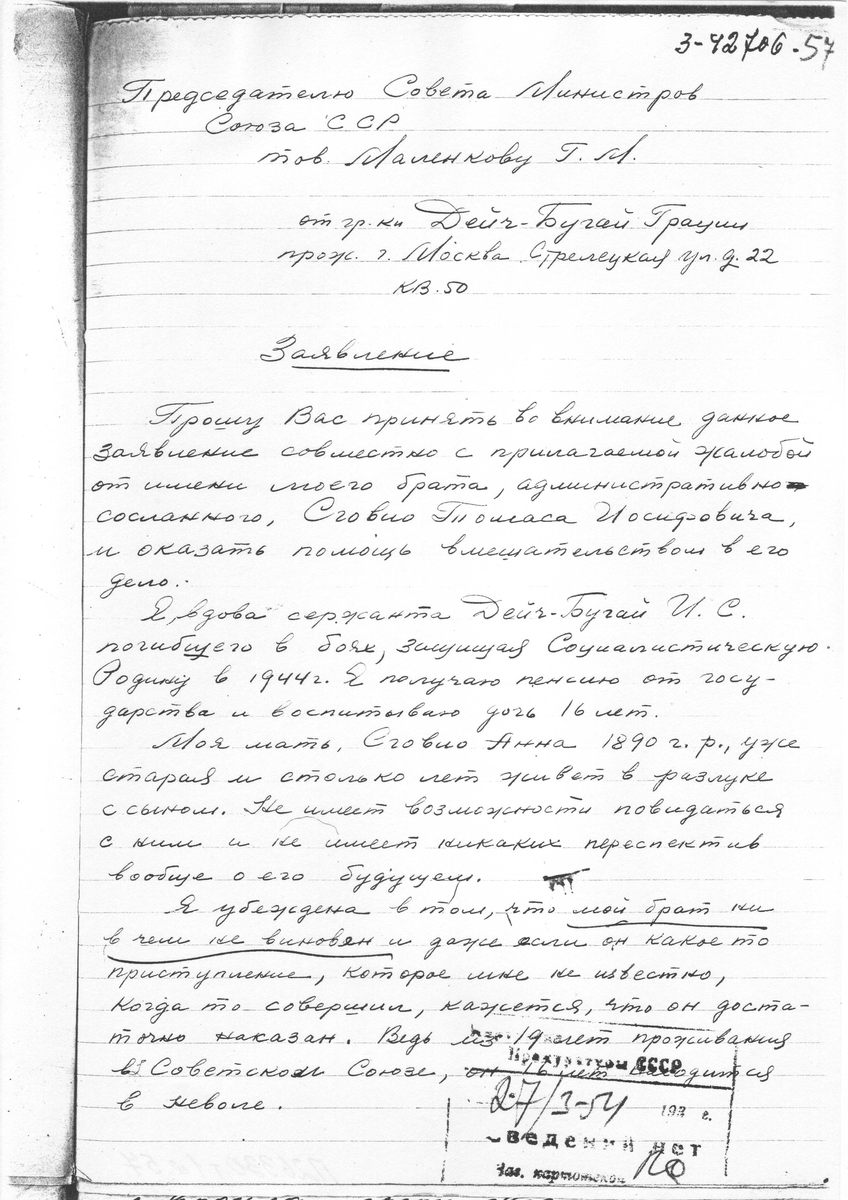 3-42706-57
Председателю Совета Министров
Союза ССР
тов. Маленкову Г. М.
от гр.ки Дейч-Бугай Грации
прож. г. Москва Стрелецкая ул. д. 22
кв. 50
Заявление
Прошу Вас принять во внимание данное
заявление совместно с прилагаемой жалобой
от имени моего брата, административно
сосланного, Сговио Томаса Иосифовича,
и оказать помощь вмешательством в его
дело.
Я, вдова сержанта Дейч-Бугай И. С.
погибшего в боях, защищая Социалистическую
Родину в 1944 г. Я получаю пенсию от госу-
дарства и воспитываю дочь 16 лет.
Моя мать, Сговио Анна 1890 г. р., уже
старая и столько лет живет в разлуке
с сыном. Не имеет возможности повидаться
с ним и не имеет никаких переспектив
вообще о его будущем.
Я убеждена в том, что мой брат ни
в чем не виновен и даже если он какое то
приступление, которое мне не известно,
когда то совершил, кажется, что он доста-
точно наказан. Ведь из 19 лет проживания
в Советском Союзе, он 16 лет находится
в неволе.
Прокуратуры СССР
27/3-54 193 г.
Сведений нет
Нач. картотекой